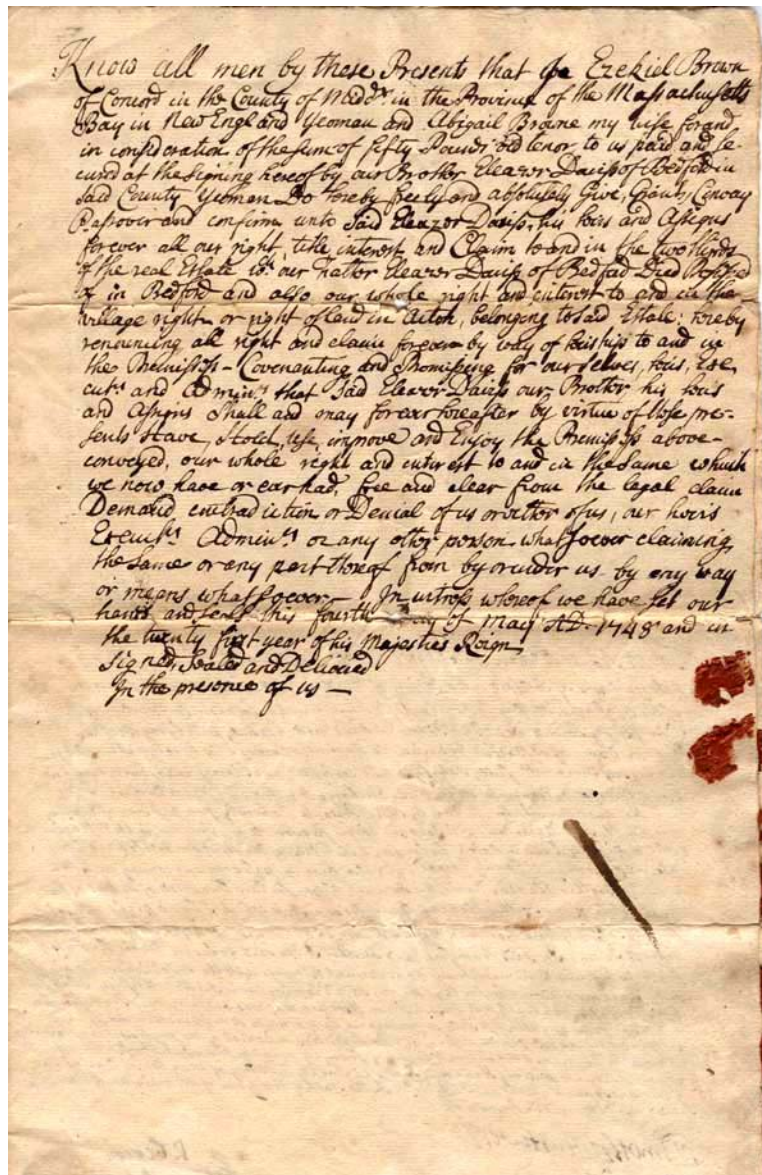 Know all men by these Presents that we Ezekiel Brown
of Concord in the County of Midd.x in the Province of the Massachusetts
Bay in New England Yeoman and Abigail Browne my wife for and
in consideration of the sum of fifty Pounds old tenor to us paid and se-
cured at the signing hereof by our Brother Eleazer Daviss of Bedford in
said County Yeoman Do hereby freely and absolutely Give, Grant, Convay
Passover and confirm unto Said Eleazer Daviss, his heirs and Assigns
forever all our right, title interest and Claim to and in the two thirds
of the real Estate our Father Eleazer Daviss of Bedford Died
of in Bedford and also our whole right and interest to and in the
village right or right of land in Acton, belonging to said Estate; hereby
renouncing all right and claim forever by way of heirship to and in
the Premisses - Covenanting and Promissing for our selves, heirs, Exe
cut.rs and Admin.rs that Said Eleazer Daviss our Brother his heirs
and Assigns Shall and may forever hereafter by virtue of these pre-
sents Have, Hold, use, improve and Enjoy the Premisses above-
conveyed, our whole right and interest to and in the Same which
we now have or ever had, free and clear from the legal claim
Demand contradiction or Denial of us or either of us, our heirs
Execut.rs Admin.rs or any other person whatsoever claiming
the Same or any part thereof from by or under us by any way
or means whatsoever - In witness whereof we have Set our
hands and seals this fourth day of May AD. 1748 and in
the twenty first year of his Majesties Reign
Signed, Sealed and Delivered
In the presence of us -